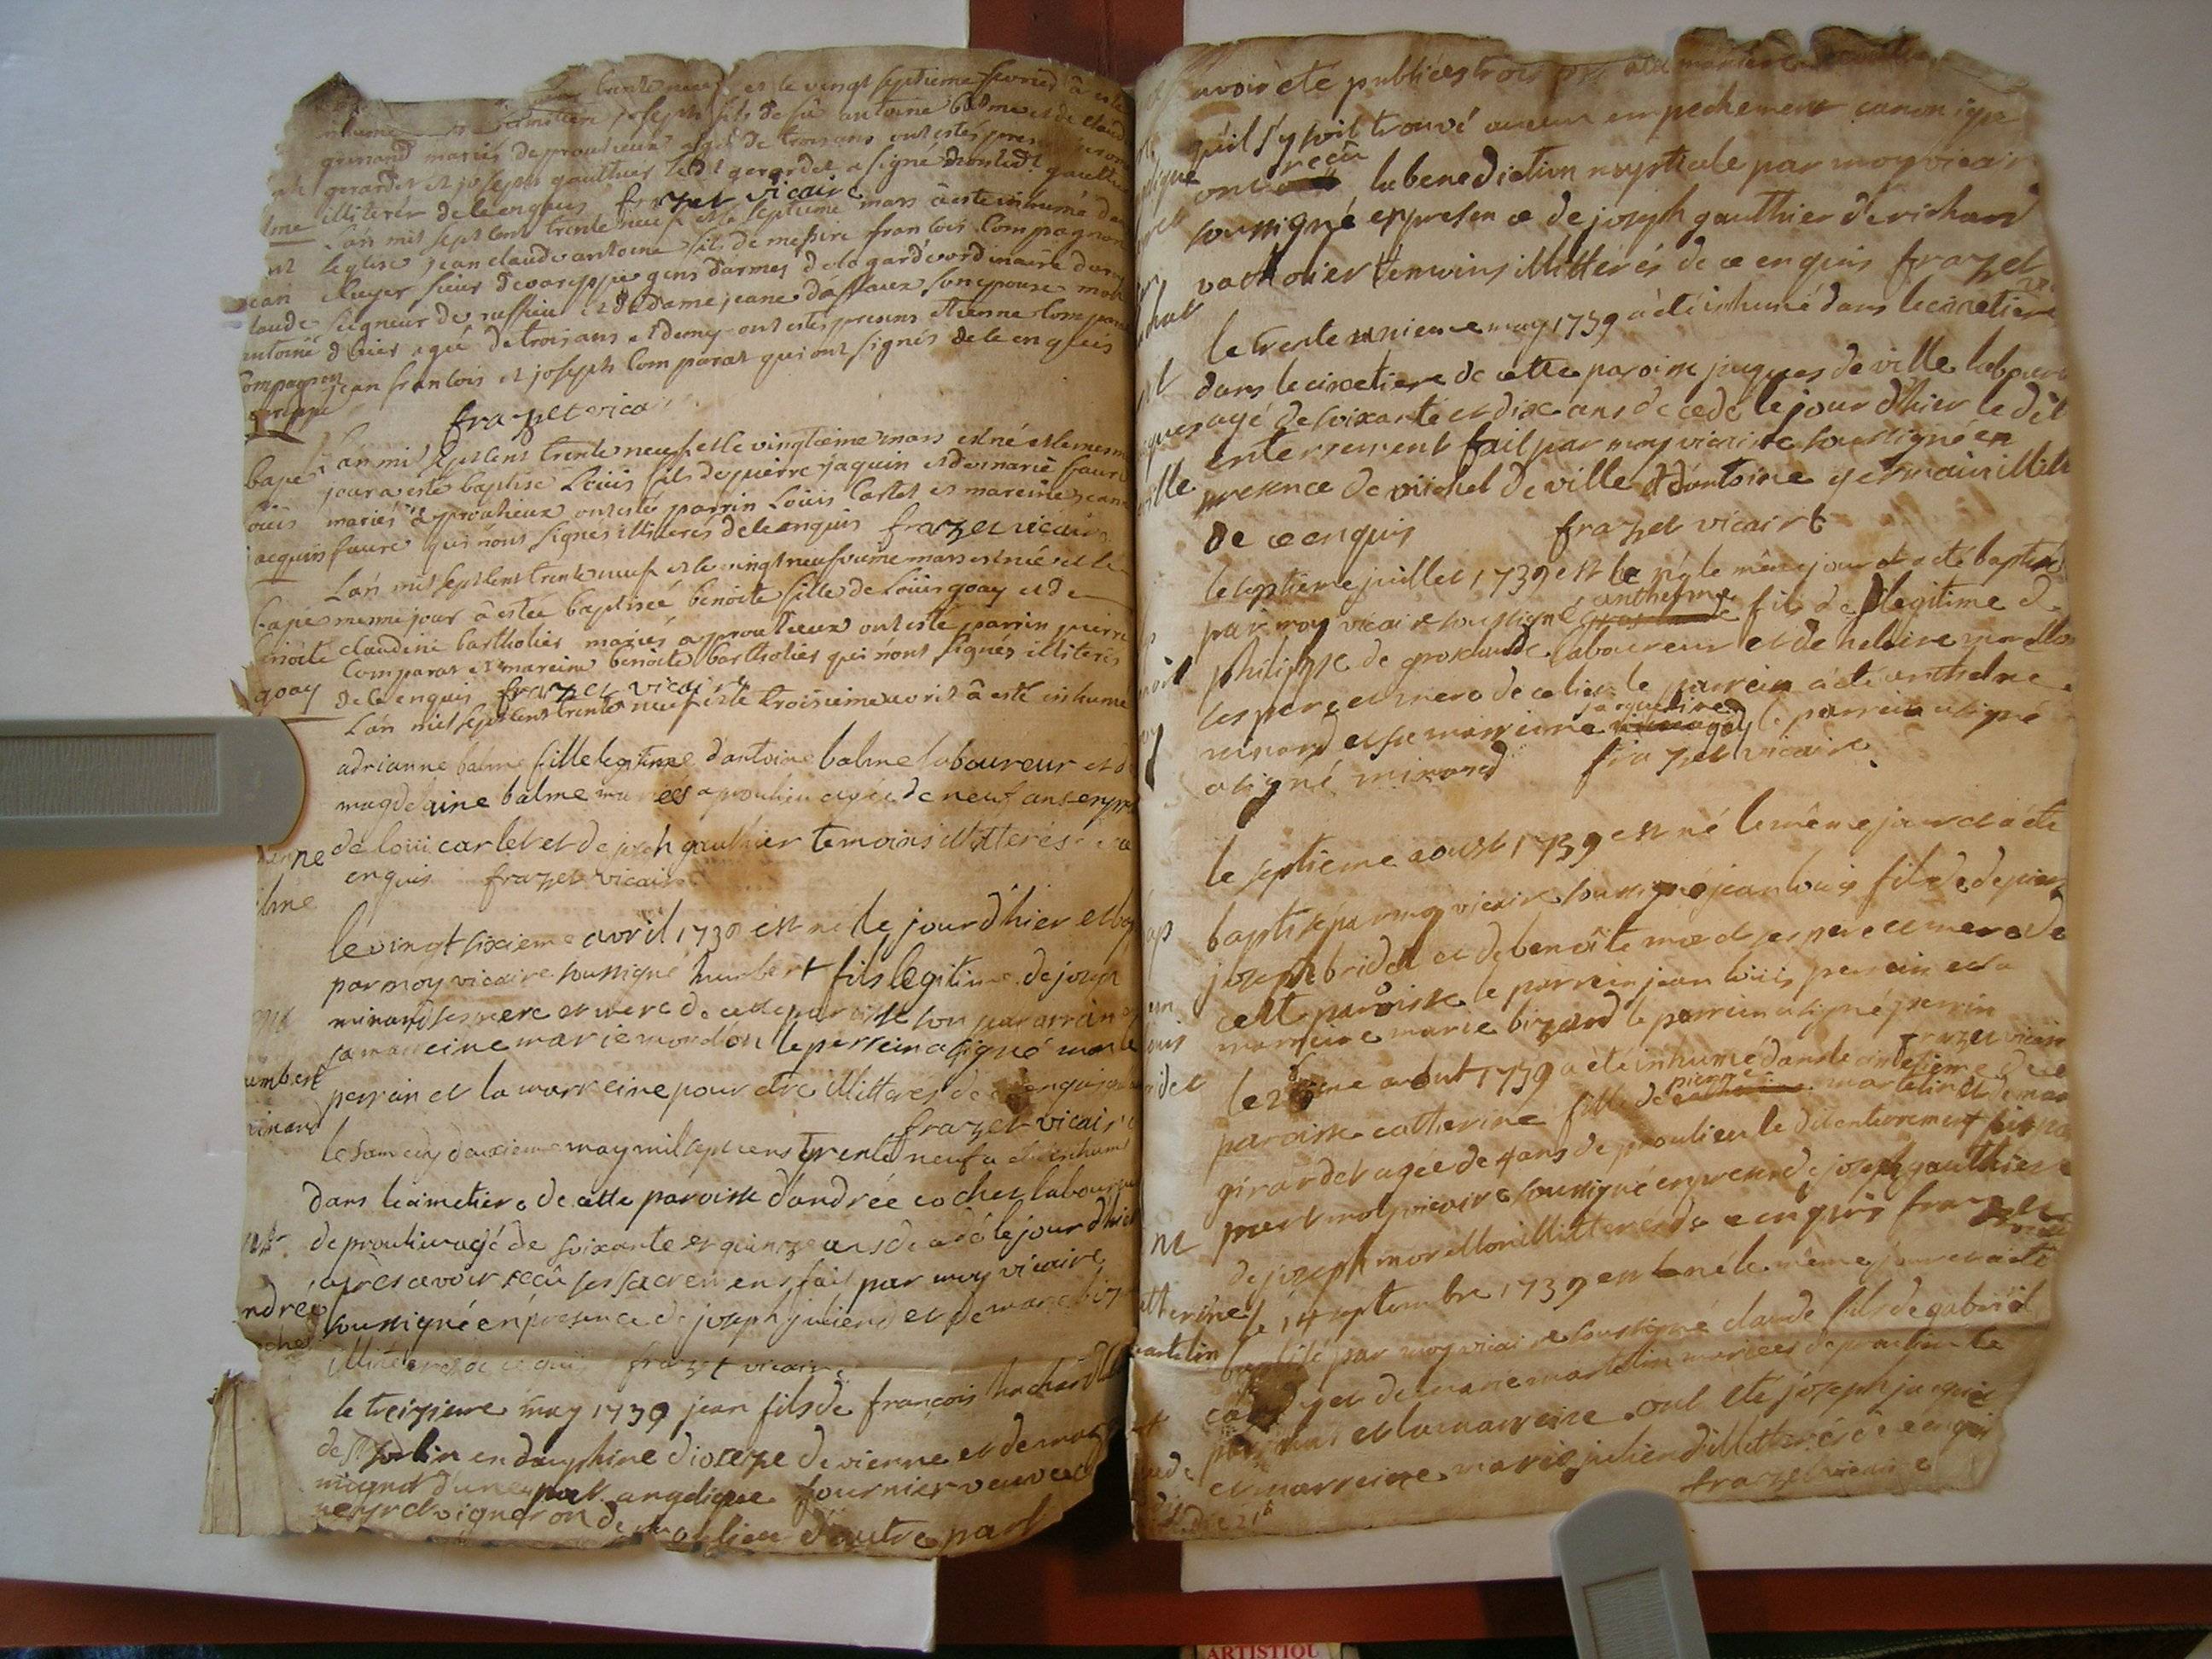 trente neuf et le vingt septieme fevrier à esté
inhumé joseph fils de fû antoine balme et de claud
grimand mariés de proulieux agé de trois ans ont estés pres
gerardet et joseph gauthier ledt gerardet a signé non ledt gauthier
illiteréz de le enquis frazet vicaire
L'an mil sept cent trente neuf et le septieme mars à esté inhumé dan
leglise jean claude antoine fils de messire francois Compagnon
Ecuyer sieur de voreppe gens d'armes de la garde ordinaire du roy
seigneur de ruffieu et de dame jeane son epouse mort
d'hier agé de trois ans et demy ont estés presens etienne Comparat
jean francois et joseph Comparat qui ont signés de le enquis
jean
laude
antoine
Compagnon
frazet vica
L'an mil sept cent trente neuf et le vingtieme mars est né et le mesm
jour a esté baptisé Loüis fils de pierre jaquin et de marie faure
mariés a proulieux ont esté parrin Loüis Carlet et mareine jeane
faure qui n'ont signés illiterés de le enquis frazet vicaire
bapé
oüis
jacquin
L'an mil sept cent trente neuf et le vingt neufvieme mars est née et le
mesme jour à estée baptisée benoite fille de Loüis goay et de
claudine bartholier mariés a proulieux ont esté parrin pierre
Comparat et mareine benoite bartholier qui n'ont signés illiterés
de le enquis frazet vicaire
bapé
benoite
goay
L'an mil sept cent trente neuf et le troisieme avril à esté inhumé
adrianne balme fille legitime d'antoine balme laboureur et d
magdelaine balme mariés a proulieu agée de neuf ans en pre
de loüi carlet et de joseph gauthier temoins illitterés de ce
enquis frazet vicaire
le vingt sixieme avril 1739 est né le jour d'hier et bap
par moy vicaire soussigné humbert fils legitime de joseph
minand ses pere et mere de cette paroisse son parrain
sa marreine marie morellon le parrein a signé
perrin et la marreine pour etre illitteres de ce enquis
frazet vicaire
umbert
minand
le samedy deuxieme may mil sept cens trente neuf a eté inhumé
dans le cimetiere de cette paroisse d'andrée cochet laboureur
de proulieu agé de soixante et quinze ans decedé le jour d'hier
apres avoir recû ses sacremens fait par moy vicaire
soussigné en présence de joseph juliend et de marc
illitteres de ce enquis frazet vicaire
ndrée
ochet
le treizieme may 1739 jean fils de françois
de St sorlin en dauphine dioceze de vienne et de
mignot d'une part angelique fournier veuve
vigneron de proulieu d'autre part
avoir eté publiées trois
qu'il s'y soit trouvé aucun empechement canonique
ont recû la benediction nuptiale par moy vicair
soussigné en presence de joseph gauthier de richard
temoins illitterés de ce enquis frazet
le trente unieme may 1739 a été inhumé dans le cimetiere
dans le cimetiere de cette paroisse jaques de ville laboure
agé de soixante et dix ans decedé le jour d'hier le dit
enterrement fait par moy vicaire soussigné en
presence de michel de ville et d'antoine germain illitt
de ce enquis frazet vicaire
le septieme juillet 1739 est né le même jour et a eté baptisé
par moy vicaire soussigné anthelme fils de legitime de
philippe de groslaude laboureur et de helaine morellon
ses pere et mere de ce lieu le parrein a été anthelme
minand et sa marreine jaqueline le parrein a signé
a signé minand frazet vicaire
le septieme aoust 1739 est né le même jour et a eté
baptisé par moy vicaire soussigné jean louis fils de de pierre
joseph bridet et de benoîte ses pere et mere de
cette paroisse le parrein jean loüis perrin et la
marreine marie bizard le parrein a signé perrin
frazet vicaire
le 28ieme aout 1739 a été inhumé dans le cimetieme de ce
paroisse catherine fille de pierre martelin et de mar
girardet agée de 4 ans de proulieu le dit enterrement fait par
moy vicaire soussigné en presence de joseph gauthier e
de joseph morellon illitterés de ce enquis frazet
atherine
martelin
le 14 septembre 1739 est né le même jour et a eté
baptisé par moy vicaire soussigné claude fils de gabriel
et de marie martelin mariés de proulieu le
parrein et la marreine ont eté joseph jaquin
et marreine marie juliend illitterés de ce enqui
frazet vicaire
ARTISTIQU